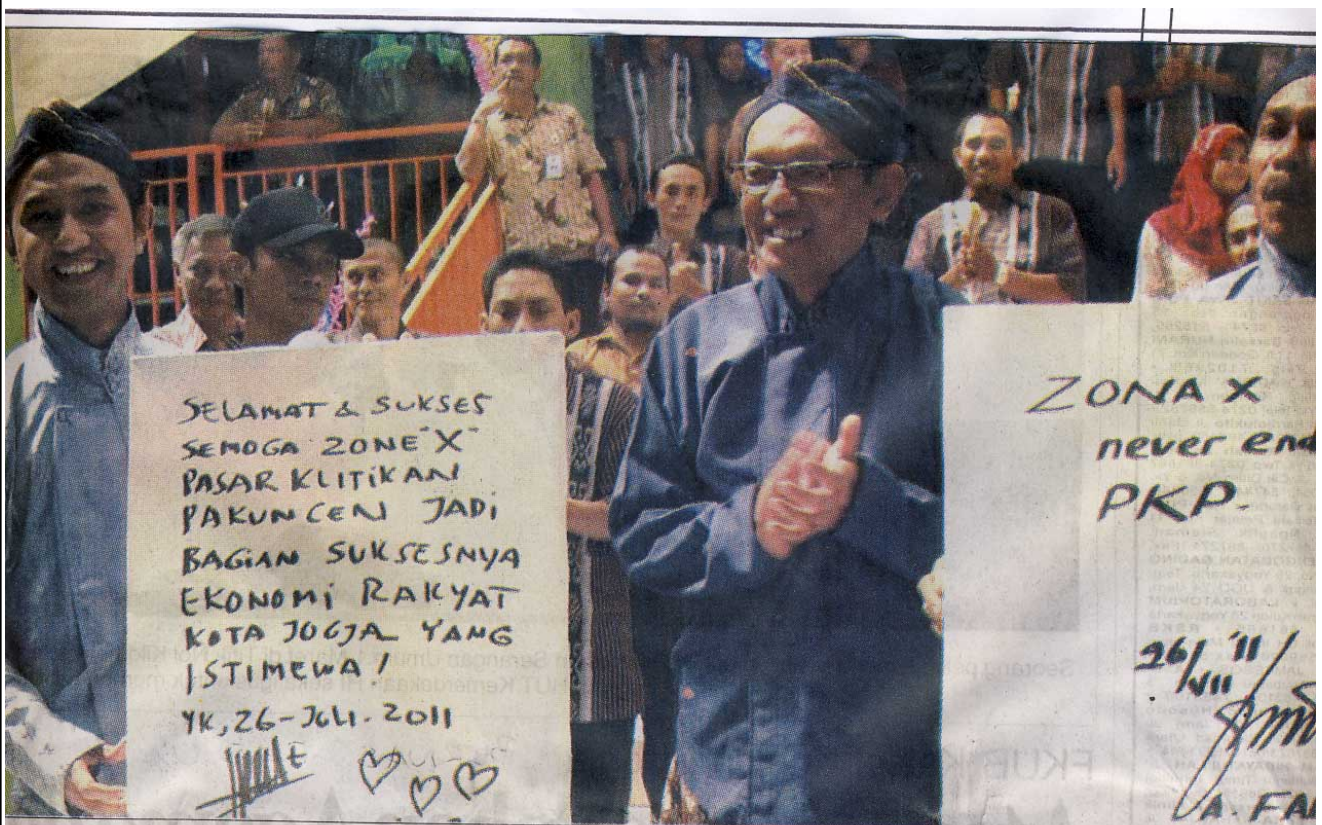 SELAMAT & SUKSES
SEMOGA ZONE "X"
PASAR KLITIKAN
PAKUNCEN JADI
BAGIAN SUKSESNYA
EKONOMI RAKYAT
KOTA JOGJA YANG
ISTIMEWA!
YK, 26-JULI-2011
ZONA X
never end
PKP.
26/VII/'11
A. FA